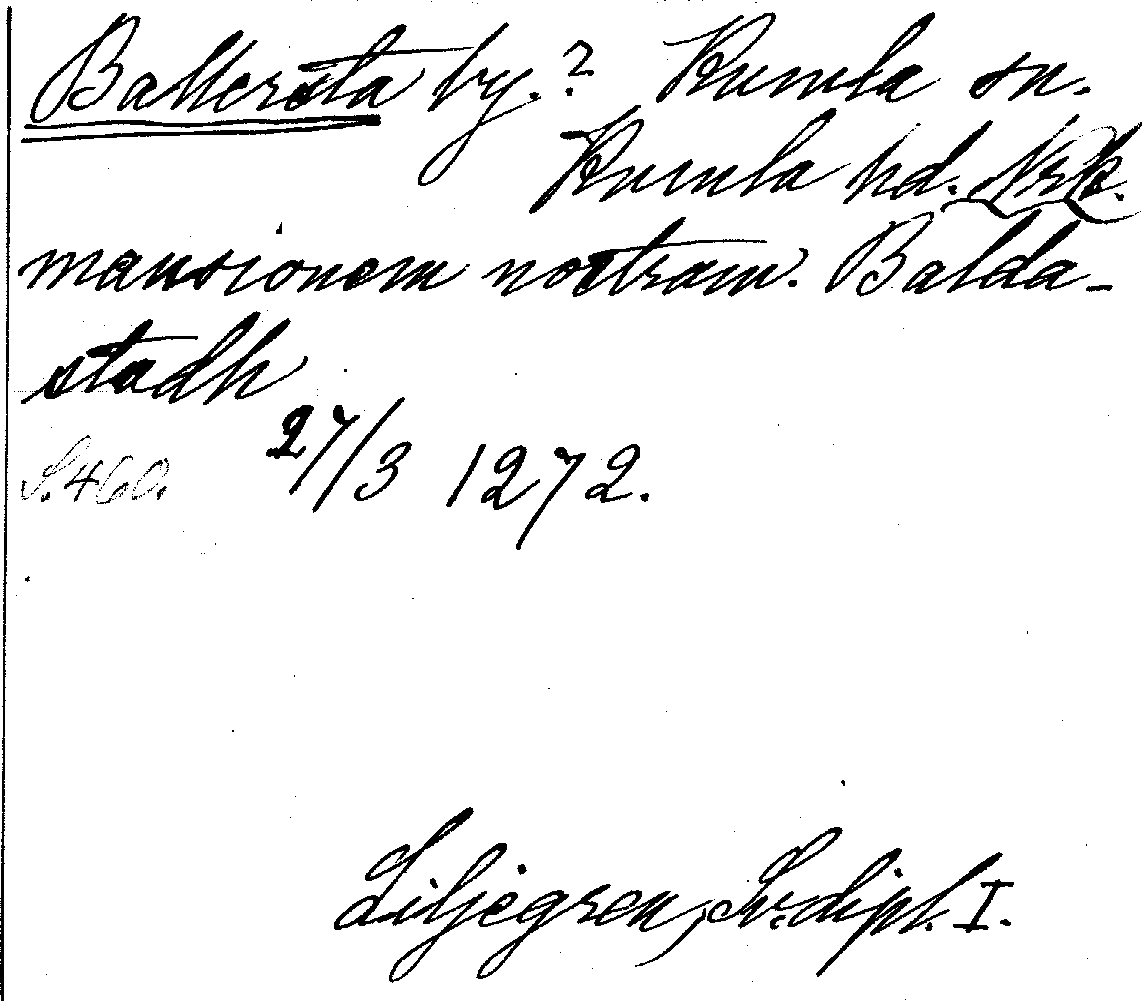 Ballersta by.? Kumla sn.
Kumla hd. Nrk.
mansionem nostram. Balda-
stadh
S. 460. 27/3 1272.
Liljegren, Sv. dipl. I.